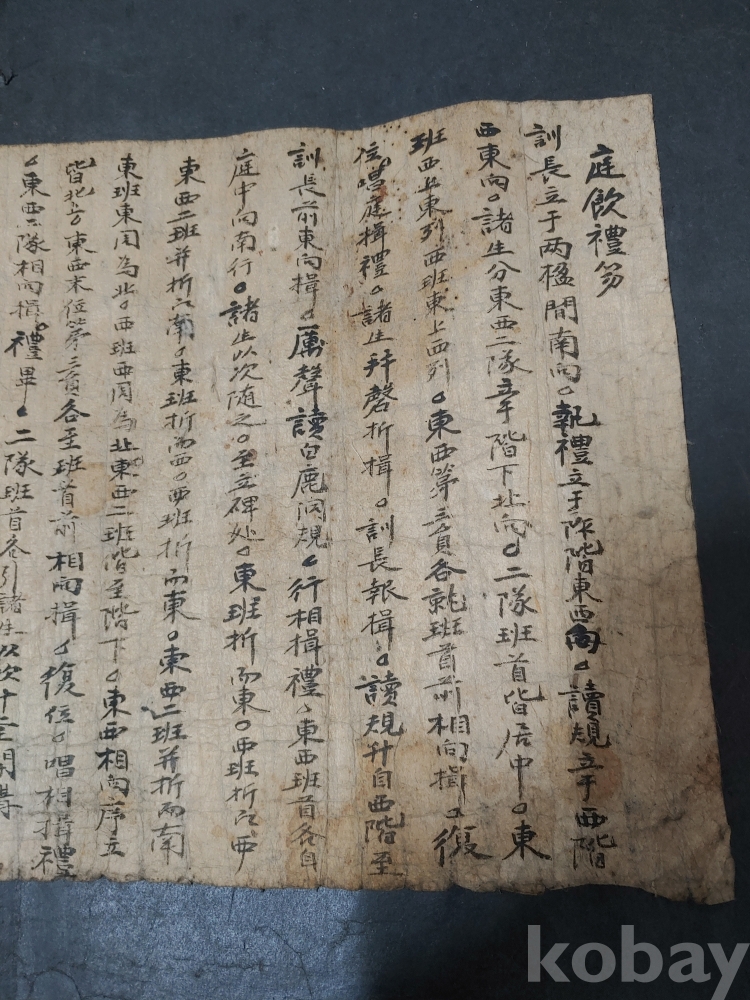 庭飮禮笏
訓長立于两楹間南向。執禮立于阼階東西向。讀規立于西階
西東向。諸生分東西二隊立于階下北向。二隊班首皆居中。東
班西上東列西班東上西列。東西第三員各就班首前相向揖。復
位。唱庭揖禮。諸生拜磬折揖。訓長報揖。讀規升自西階至
訓長前東向揖。厲聲讀白鹿洞規。行相揖禮。東西班首各自
庭中向南行。諸生以次随之。至立碑处。東班折而東。西班折而西
東西二班并折而南。東班折而西。西班折而東。東西二班并折而南
東班東周為北。西班西周為北東西二班階至階下。東西相向序立
皆北方東西末位第三員各至班首前相向揖。復位。唱相揖禮
。東西二隊相向揖。禮畢。二隊班首各引諸生以次十二開講
kobay